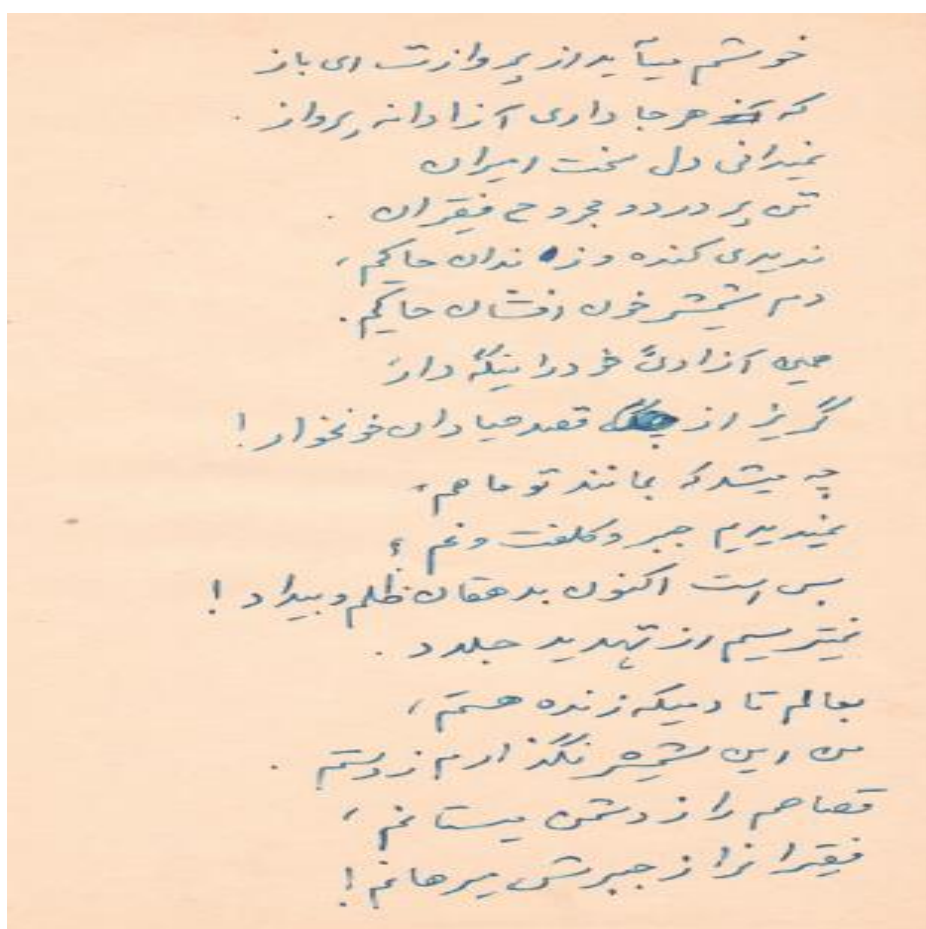 خوشم میآید از پروازت ای باز
که هرجا داری آزادانه پرواز .
نمیدانی دل سخت امیران
تن پر درد و مجروح فقیران .
ندیدی کنده و زندان حاکم ،
دم شمشیر خون افشان حاکم .
همین آزادی خود را نگه دار
گریز از قصد صیادان خونخوار !
چه میشد که بمانند تو ما هم ،
نمیدیدیم جبر و کلفت و غم ؟
بس است اکنون بدهقان ظلم و بیداد !
نمیترسیم از تهدید جلاد .
بعالم تا دمیکه زنده هستم ،
من این شمشیر نگذارم ز دستم .
قصاصم را ز دشمن میستانم ،
فقیرانرا ز جبرش میرهانم !